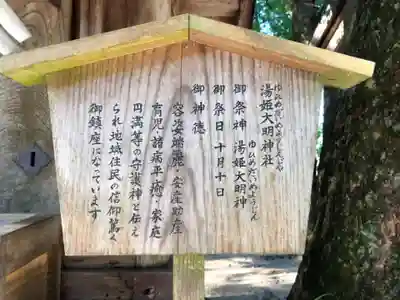 ゆひめだいめうじんじゃ
湯姫大明神社
ゆひめだいめようじん
御祭神 湯姫大明神
御祭日 十月十日
御神徳
容姿端麗・安産助産
育児・諸病平癒・家庭
円満等の守護神と伝え
られ地域住民の信仰篤く
御鎮座になっています